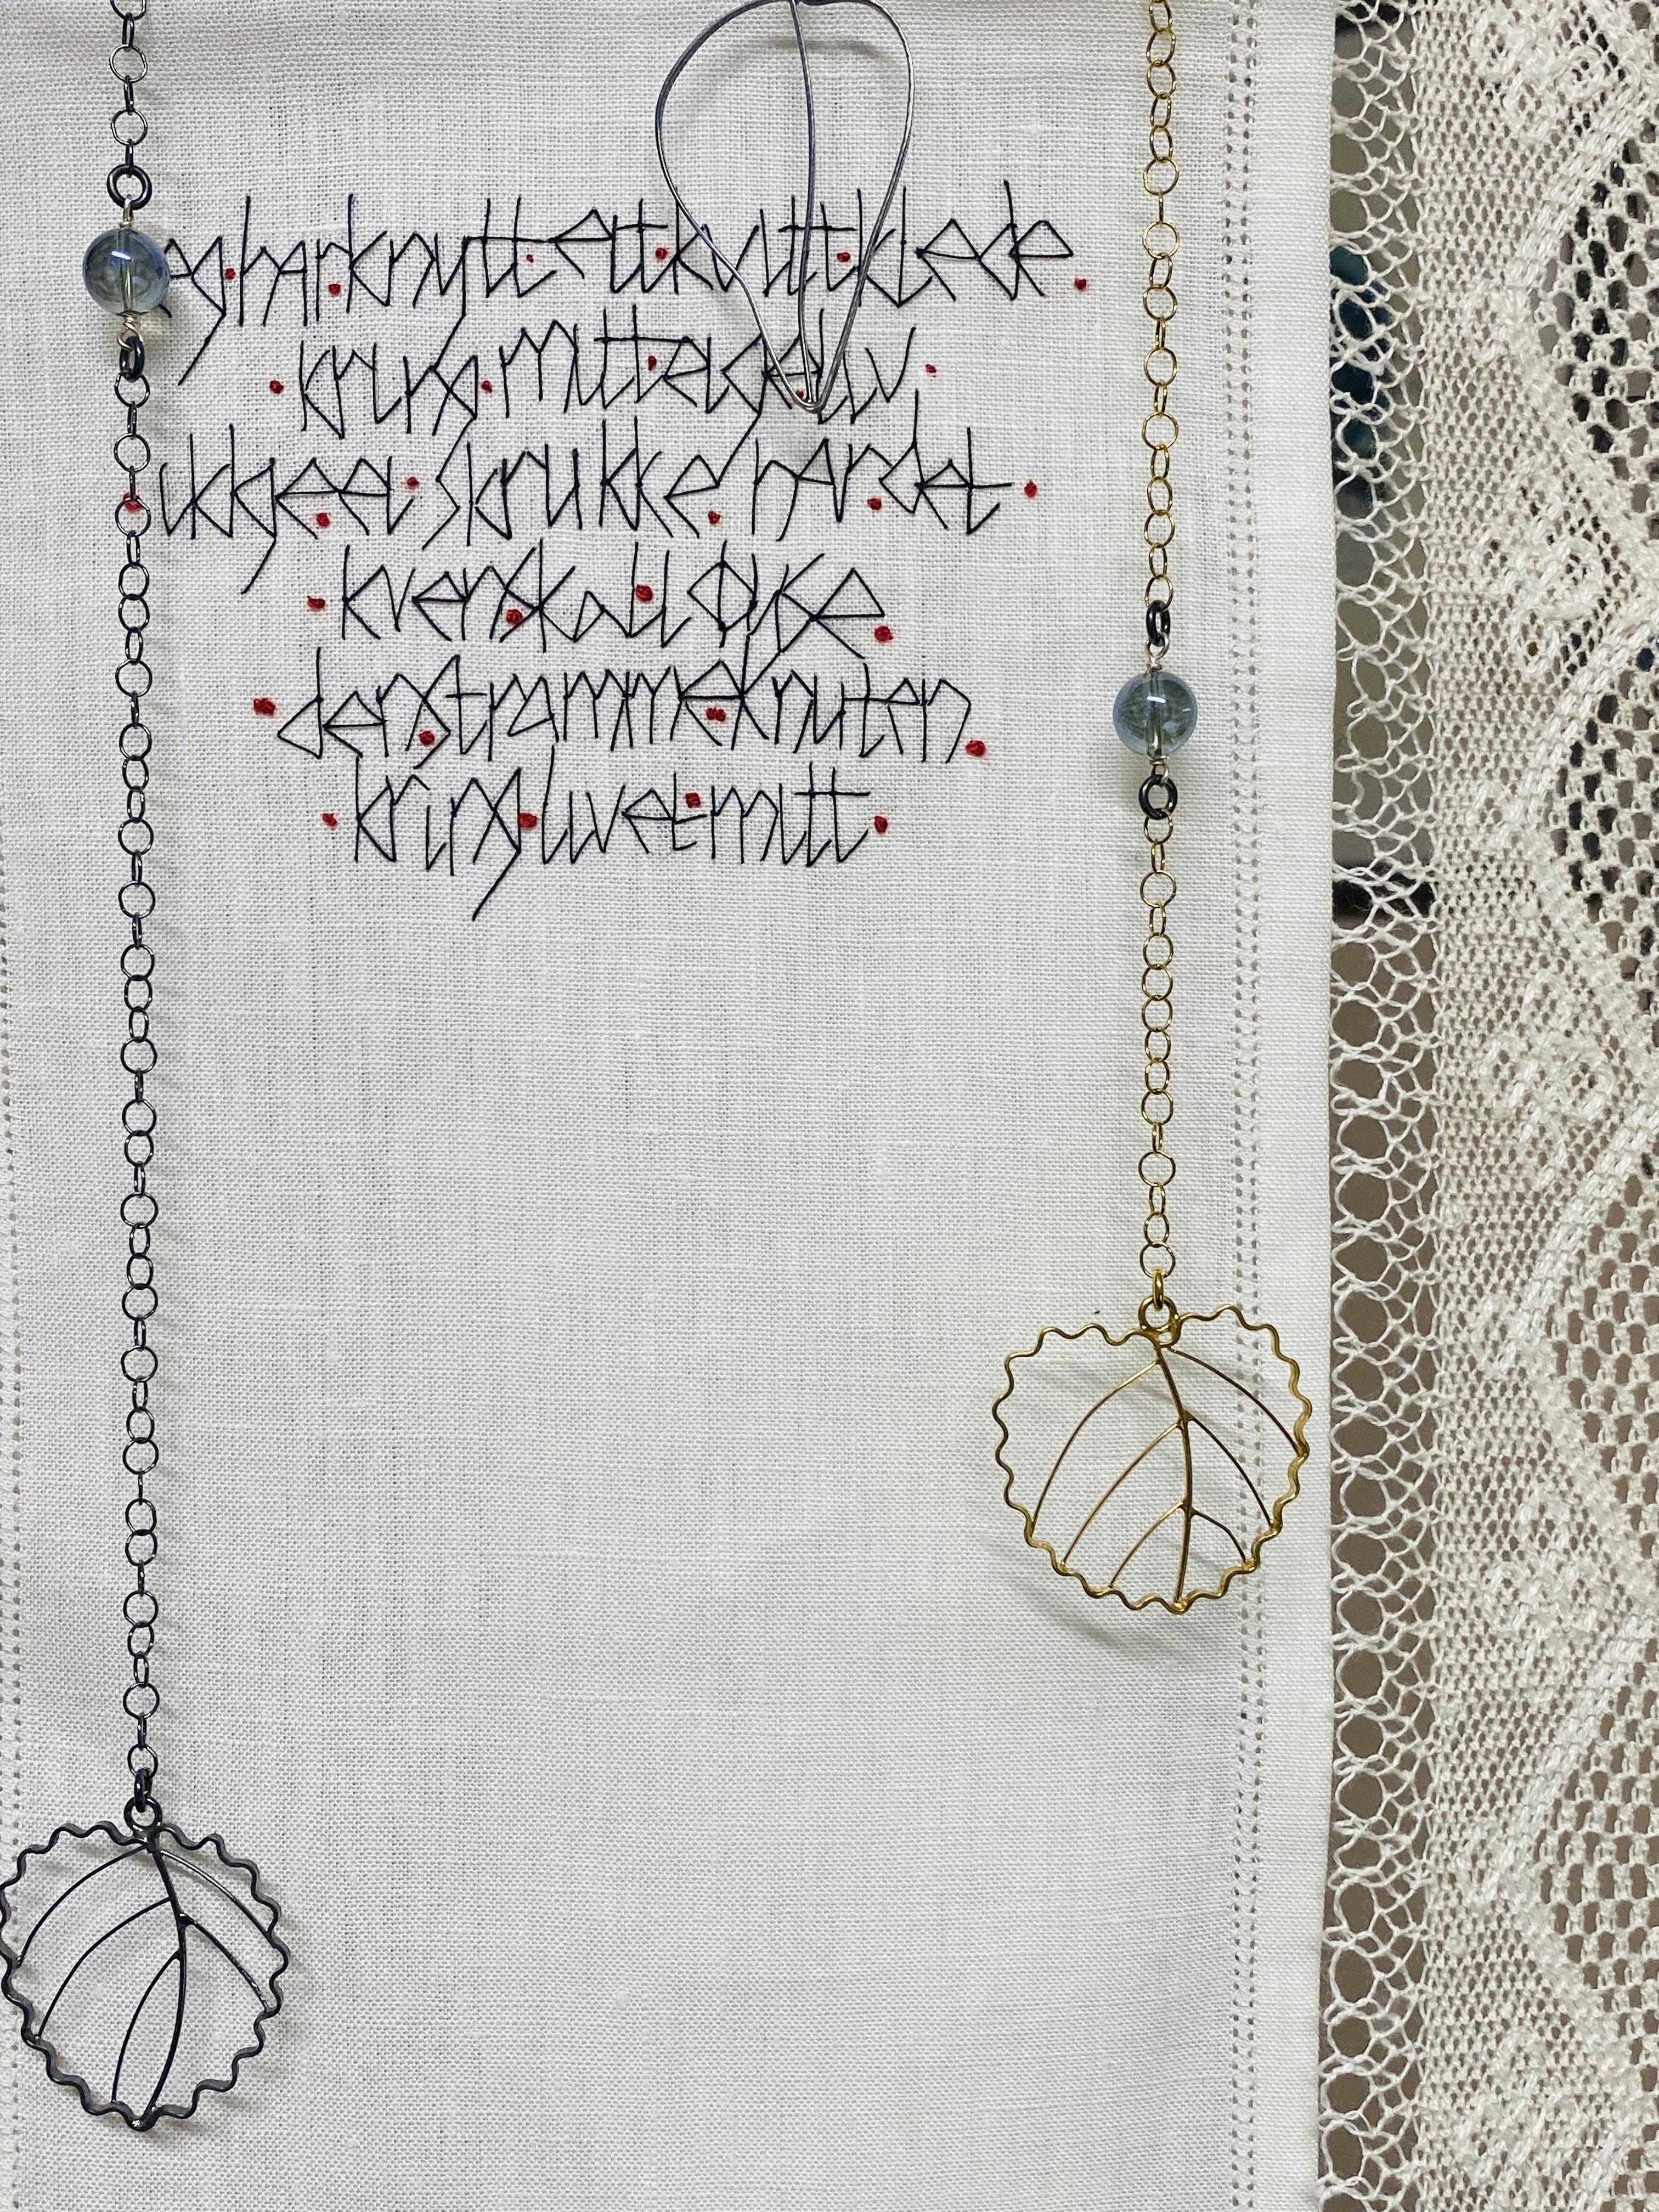 eg har knytt eit kvitt klede
kring mitt eige liv
ikkje ei skrukke har det
kven skal løyse
den stramme knuten
kring livet mitt